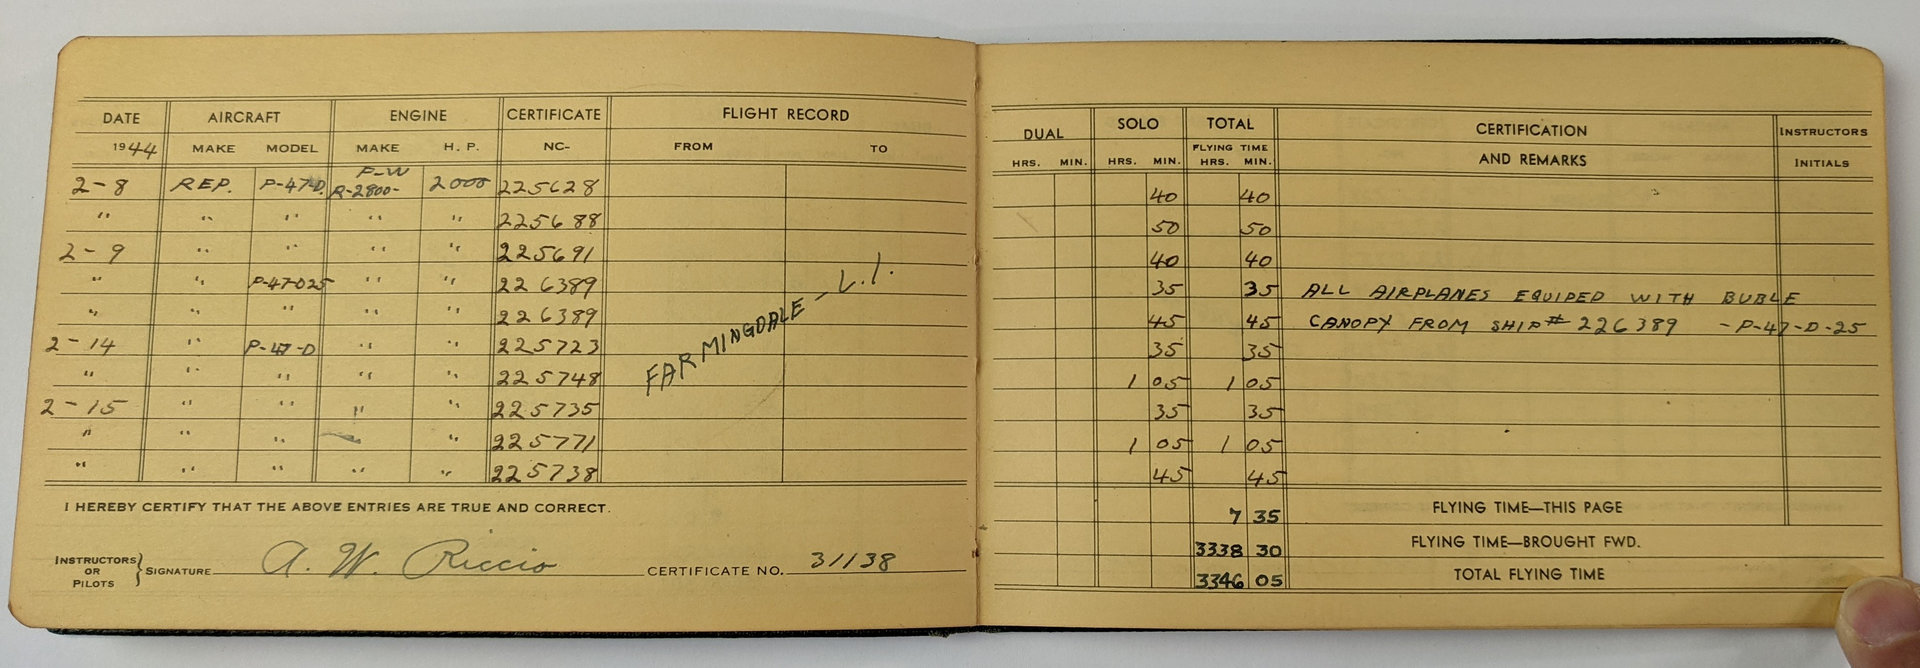 DATE AIRCRAFT ENGINE CERTIFICATE FLIGHT RECORD
1944 MAKE MODEL MAKE H. P. NC- FROM TO
2-8 REP. P-47-D. P-W R-2800- 2000 225628
" " " " " 225688
2-9 " " " " 225691
" " P-47-D25 " " 226389
" " " " " 226389
2-14 " P-47-D " " 225723
" " " " " 225748
2-15 " " " " 225735
" " " " 225771
" " " " " 225738
FARMINGDALE - L.I.
I HEREBY CERTIFY THAT THE ABOVE ENTRIES ARE TRUE AND CORRECT.
INSTRUCTORS OR PILOTS } SIGNATURE A. W. Riccio CERTIFICATE NO. 31138
DUAL SOLO TOTAL CERTIFICATION INSTRUCTORS
FLYING TIME
HRS. MIN. HRS. MIN. HRS. MIN. AND REMARKS INITIALS
40 40
50 50
40 40
35 35 ALL AIRPLANES EQUIPED WITH BUBLE
45 45 CANOPY FROM SHIP # 226389 - P-47-D-25
35 35
1 05 1 05
35 35
1 05 1 05
45 45
7 35 FLYING TIME—THIS PAGE
3338 30 FLYING TIME—BROUGHT FWD.
3346 05 TOTAL FLYING TIME